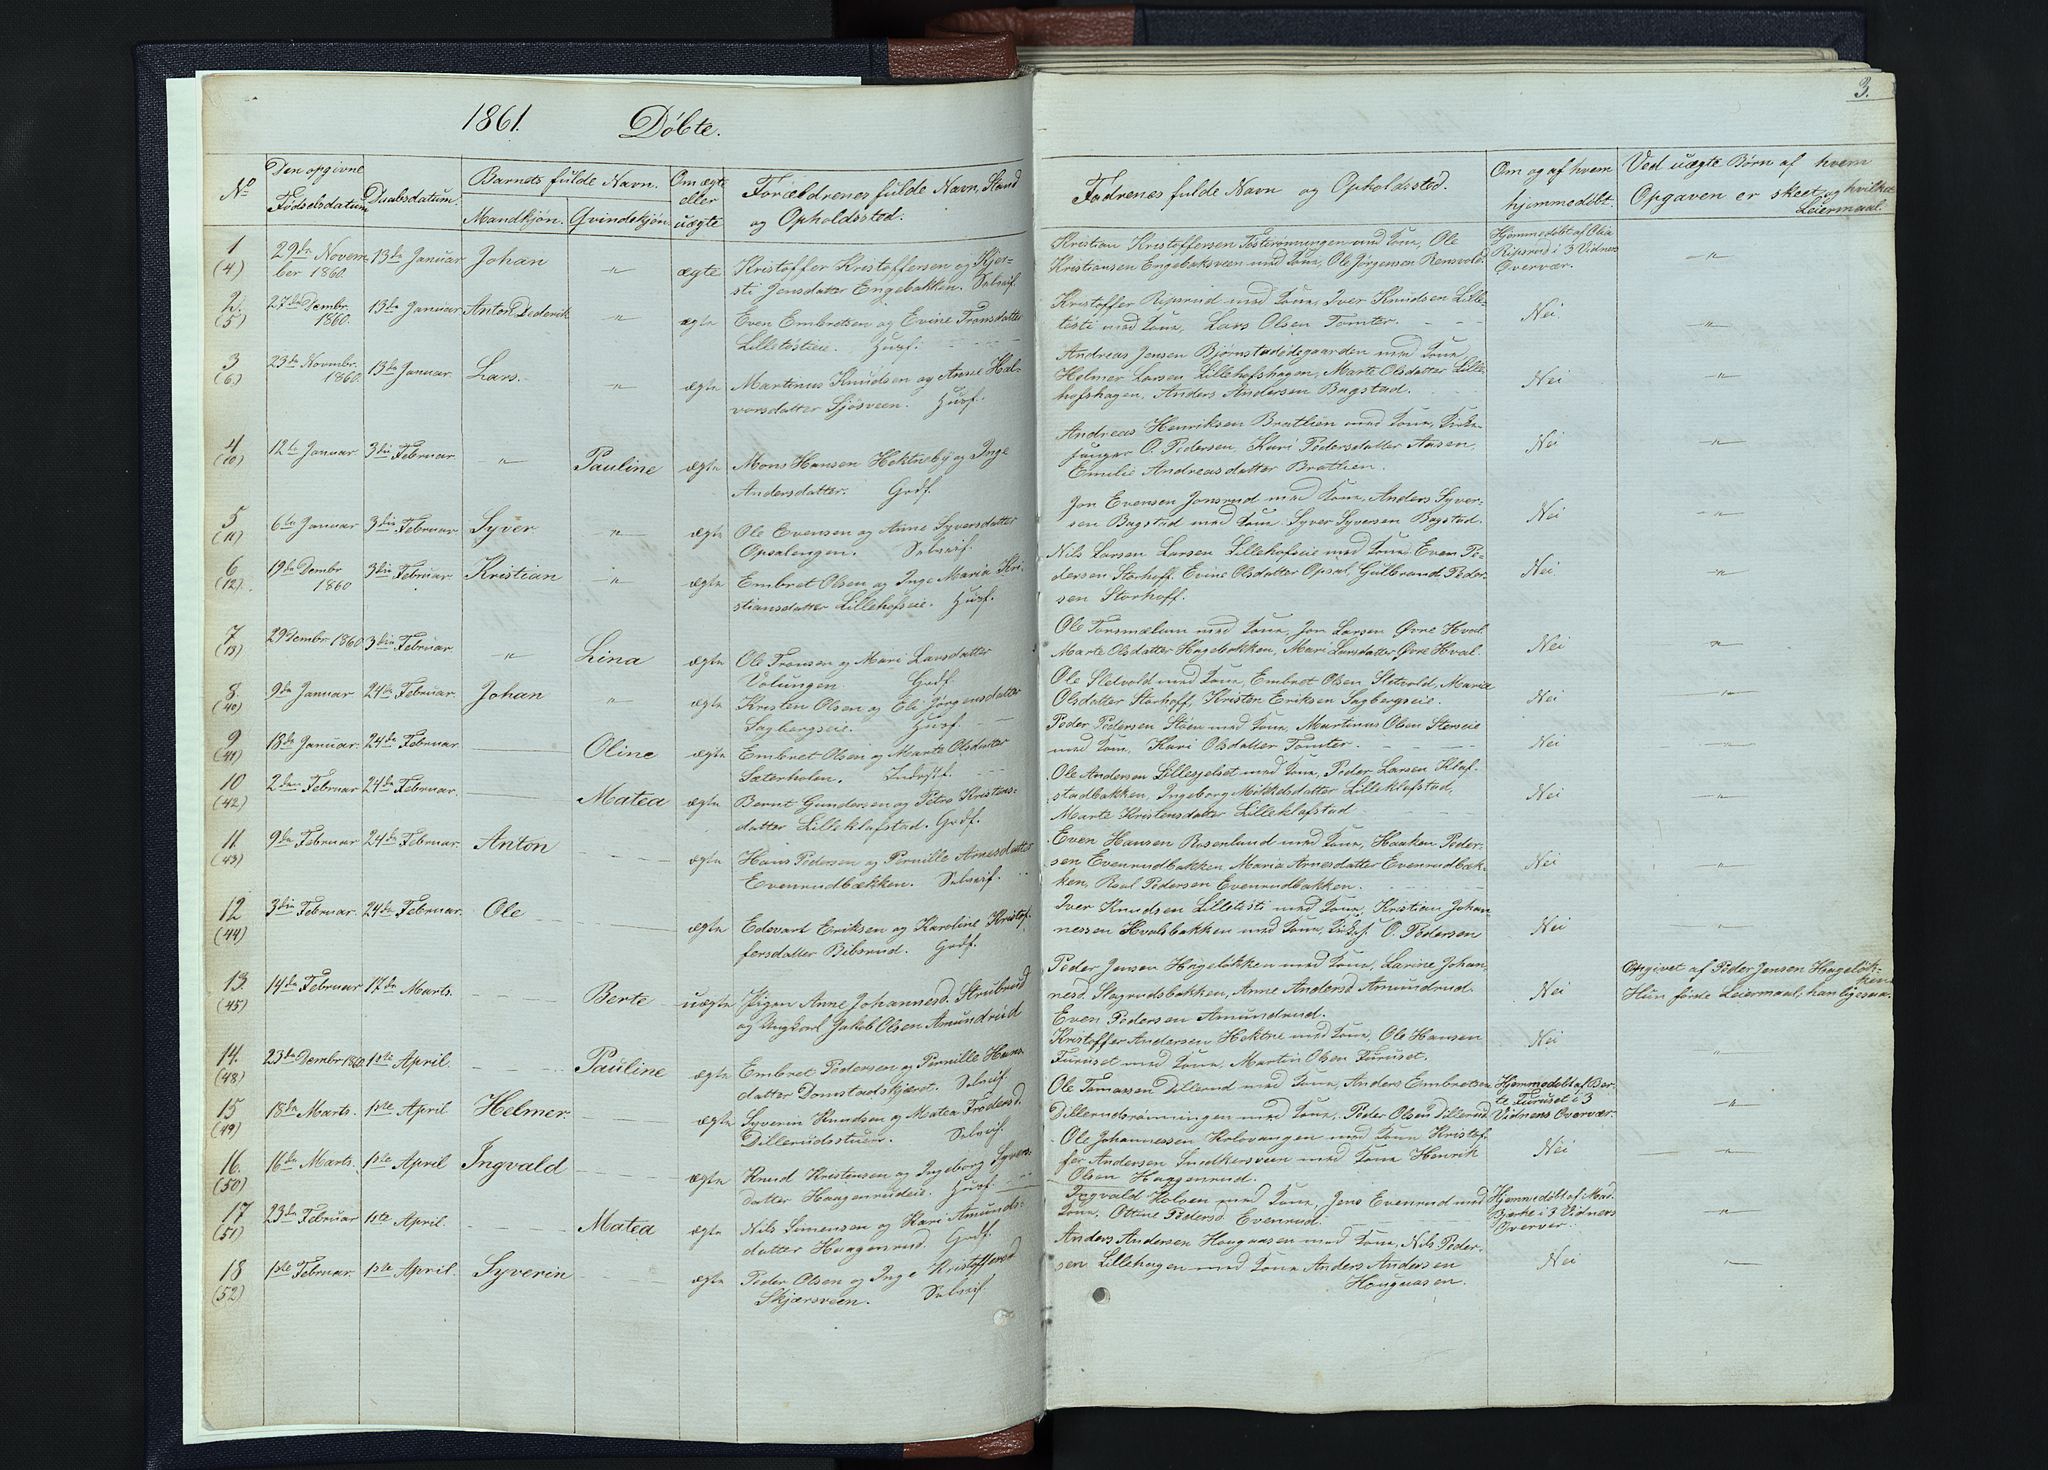 1861. Döbte.
3.
No
Den opgivne Födselsdatum
Daabsdatum.
Barnets fulde Navn.
Mandkjön. Qvindekjön.
Om ægte eller uægte
Forældrenes fulde Navn, Stand og Opholdssted.
Fadrenes fulde Navn og Opholdssted.
Om og af hvem hjemmedöbt.
Ved uægte Børn af hvem Opgaven er skeet, og hvilket Leiermaal.
1 (4) 29de Novem- 13de Januar Johan " ægte Kristoffer Kristoffersen og Kjer-
ber 1860. sti Jensdatter Engebakken. Selveif.
Kristian Kristoffersen Tosterönningen med Kone, Ole
Kristiansen Engebaksveen med Kone, Ole Jörgensen Rensvold.
Hjemmedöbt af Olia
Ripsrud i 3 Vidners
Overvær.
"
2. (5) 27de Dcmbr. 1860. 13de Januar Anton Diderik " ægte Even Embretsen og Evine Transdatter
Lilletöstieie. Husf.
Kristoffer Ripsrud med Kone, Iver Knudsen Lille-
tösti med Kone, Lars Olsen Tomter.
Nei "
3 (6.) 23de Novmbr. 1860. 13de Januar Lars. " ægte Martinus Knudsen og Anne Hal-
vorsdatter Sjösveen. Husf.
Andreas Jensen Björnstadödegaarden med Kone,
Helmer Larsen Lillehofshagen, Marte Olsdatter Lille-
hofshagen, Anders Andersen Bagstad.
Nei "
4 (10) 12te Januar 3die Februar " Pauline ægte Mons Hansen Hektneby og Inge
Andersdatter. Grdf.
Andreas Henriksen Brætlien med Kone, Kirke-
sanger O. Pedersen, Kari Pedersdatter Aasen,
Emilie Andreasdatter Brætlien.
Nei "
5 (11) 6te Januar 3die Februar Syver " ægte Ole Evensen og Anne Syversdatter
Opsalengen. Selveif.
Jon Evensen Jonsrud med Kone, Anders Syver-
sen Bagstad med Kone, Syver Syversen Bagstad.
Nei "
6 (12). 19de Dcmbr 1860 3die Februar. Kristian " ægte Embret Olsen og Inge Maria Kri-
stiansdatter Lillehofseie. Husf.
Nils Larsen Larsen Lillehofseie med Kone, Even Pe-
dersen Storhoff. Evine Olsdatter Opsal, Gulbrand Peder-
sen Storhoff.
Nei. "
7 (13) 29 Dcmbr 1860 3die Februar. " Lina ægte Ole Transen og Mari Larsdatter
Volungen. Grdf.
Ole Torsmælum med Kone, Jon Larsen Övre Hval.
Marte Olsdatter Hagebakken, Mari Larsdatter Övre Hval.
Nei "
8. (40) 9de Januar 24de Februar. Johan " ægte Kristen Olsen og Eli Jörgensdatter
Sagbergseie. Husf.
Ole Sletvold med Kone, Embret Olsen Sletvold, Maria
Olsdatter Storhoff, Kristen Eriksen Sagbergseie.
Nei "
9 (41) 18de Januar. 24de Februar. Oline ægte Embret Olsen og Marte Olsdatter
Sæterholen. Inderstf.
Peder Pedersen Stöen med Kone, Martinus Olsen Sterseie
med Kone, Kari Olsdatter Tomter.
Nei "
10 (42) 2den Februar 24de Februar. Matea ægte Bernt Gundersen og Petra Kristens-
datter Lilleklafstad. Grdf.
Ole Andersen Lillesjelset med Kone, Peder Larsen Klaf-
stadbakken, Ingeborg Mikkelsdatter Lilleklafstad,
Marte Kristensdatter Lilleklafstad
Nei "
11. (43) 9de Februar 24de Februar. Anton ægte Hans Pedersen og Pernille Arnesdatter
Evenrudbækken. Selveif.
Even Hansen Rosenlund med Kone, Haaken Peder-
sen Evenrudbakken Maria Arnesdatter Evenrudbæk-
ken, Roal Pedersen Evenrudbakken.
Nei "
12 (44) 3die Februar. 24de Februar. Ole ægte Edevart Eriksen og Karoline Kristof-
fersdatter Bibsrud. Grdf.
Iver Knudsen Lilletösti med Kone, Kristian Johan
nessen Hvalsbakken med Kone, Kirkes. O. Pedersen
Nei "
13. (45) 14de Februar 17de Marts. Berte uægte Pigen Anne Johannesd. Strubrud
og Ungkarl Jakob Olsen Amundrud
Peder Jensen Hageløkken med Kone, Larine Johan-
nesd. Stagrudsbakken, Anne Andersd. Amundrud.
Even Pedersen Amundrud.
Nei
Opgivet af Peder Jensen Hagelök-
ken.
Hun förste Leiermaal, han ligesaa.
14. (48) 23de Dcmbr 1860. 1ste April. Pauline ægte Embret Pedersen og Pernille Hans-
datter Domstadskjæret. Selveif.
Kristoffer Andersen Hektne med Kone, Ole Hansen
Furuset med Kone, Martin Olsen Furuset.
Nei "
15 (49) 18de Marts. 1ste April Helmer. ægte Syverin Knudsen og Matea Frodersd.
Dillerudsstuen. Selveif.
Ole Tomassen Dillerud med Kone, Anders Embretsen
Dillerudsrönningen med Kone, Peder Olsen Dillerud.
Hjemmedöbt af Ber-
te Furuset i 3
Vidners Overvær.
"
16. (50) 16de Marts. 1ste April Ingvald ægte Knud Kristensen og Ingeborg Syvers-
datter Haagenrudeie. Husf.
Ole Johannessen Kolovangen med Kone Kristof-
fer Andersen Snedkersveen med Kone Henrik
Olsen Haagenrud.
Nei "
17 (51) 23de Februar 1ste April. Matea ægte Nils Simensen og Kari Amunds-
datter Haagenrud. Grdf.
Ingvald Holoen med Kone, Jens Evenrud med
Kone, Ottine Pedersd. Evenrud.
Hjemmedöbt af Mad.
Berke i 3 Vidners
Overvær.
"
18 (52) 1ste Februar. 1ste April. Syverin ægte Peder Olsen og Inge Kristoffersd
Skjærsveen. Selveif.
Anders Andersen Haugaasen med Kone, Nils Peder-
sen Lillehagen med Kone Anders Andersen
Haugaasen.
Nei "